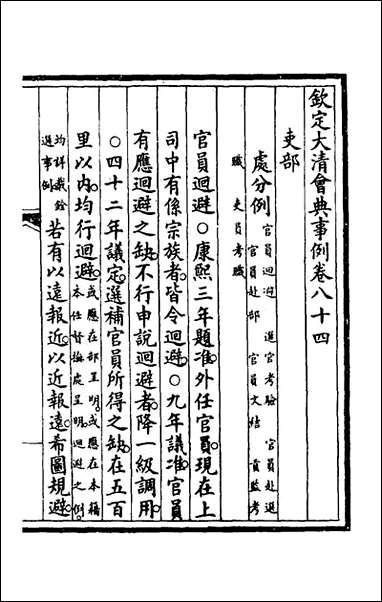 欽定大清會典事例卷八十四
吏部
處分例 官員迴避 選官考驗 官員赴選
官員赴部 官員文結 貢監考
職 吏員考職
官員迴避○康熙三年題准外任官員現在上
司中有係宗族者皆令迴避○九年議准官員
有應迴避之缺不行申說迴避者降一級調用
○四十二年議定選補官員所得之缺在五百
里以內均行迴避或應在部呈明或應在本籍
本任督撫處呈明迴避之例
均詳載銓
選事例 若有以遠報近以近報遠希圖規避